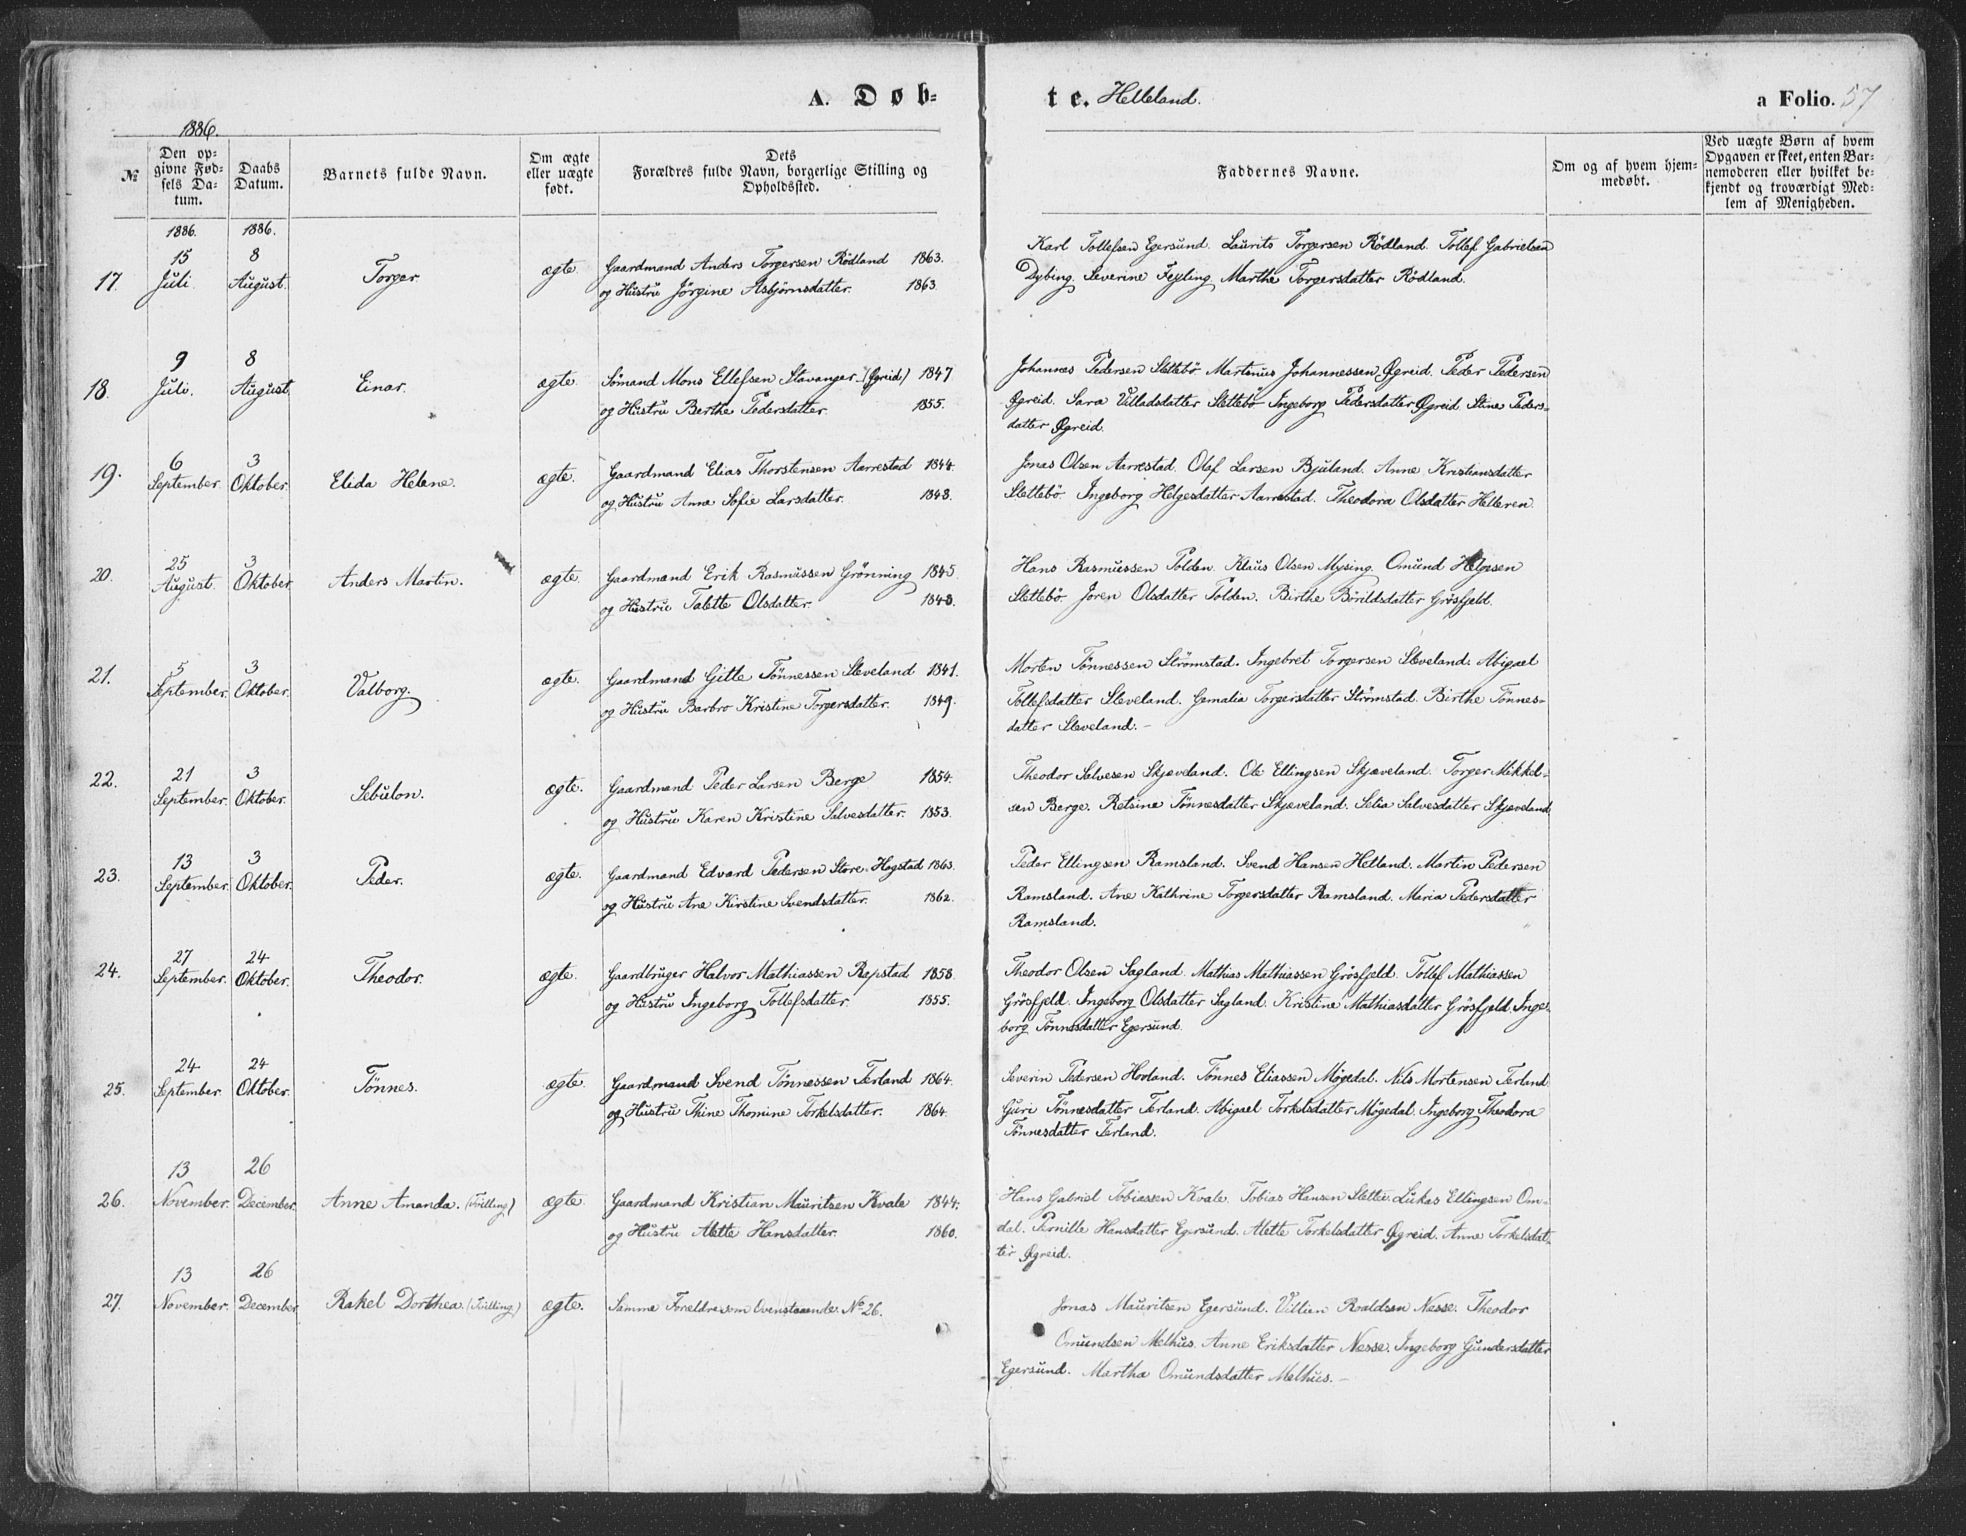 A. Døb-
te. Helleland.
a Folio. 57
1886.
№
Den op-
givne Fød-
sels Da-
tum.
Daabs
Datum.
Barnets fulde Navn.
Om ægte
eller uægte
født.
Dets
Forældres fulde Navn, borgerlige Stilling og
Opholdssted.
Faddernes Navne.
Om og af hvem hjem-
medøbt.
Ved uægte Børn af hvem
Opgaven er skeet, enten Bar-
nemoderen eller hvilket be-
kjendt og troværdigt Med-
lem af Menigheden.
1886. 1886.
15 8
17. Juli. August. Torger ægte
Gaardmand Anders Torgersen Rödland 1863.
og Hustru Jörgine Asbjörnsdatter. 1863.
Karl Tollefsen Egersund. Laurits Torgersen Rödland. Tollef Gabrielsen
Dybing. Severine Feyling. Marthe Torgersdatter Rödland.
9 8
18. Juli. August. Einar. ægte.
Sömand Mons Ellefsen Stavanger (Øgreid) 1847
og Hustru Berthe Pedersdatter. 1855.
Johannes Pedersen Slettebö. Martinius Johannessen Øgreid. Peder Pedersen
Øgreid. Sara Villadsdatter Slettebö. Ingeborg Pedersdatter Øgreid. Stine Peders-
datter Øgreid.
6 3
19. September. Oktober. Elida Helene. ægte.
Gaardmand Elias Thorstensen Aarrestad 1844.
og Hustru Anne Sofie Larsdatter. 1848.
Jonas Olsen Aarrestad. Olaf Larsen Bjuland. Anne Kristiansdatter
Slettebö. Ingeborg Helgesdatter Aarrestad. Theodora Olsdatter Helleren.
25 3
20. August. Oktober. Anders Martin. ægte.
Gaardmand Erik Rasmussen Grönning 1845.
og Hustru Talette Olsdatter. 1848.
Hans Rasmussen Polden. Klaus Olsen Mysing. Omund Helgesen
Slettebö. Joren Olsdatter Polden. Birthe Börildsdatter Grösfjeld.
5 3
21. September. Oktober. Valborg. ægte.
Gaardmand Gitle Tönnessen Sleveland 1841.
og Hustru Barbro Kristine Torgersdatter. 1849.
Morten Tönnessen Strömstad. Ingebret Torgersen Sleveland. Abigael
Tollefsdatter Sleveland. Gemalia Torgersdatter Strömstad. Birthe Tönnes-
datter Sleveland.
21 3
22. September. Oktober. Sebulon. ægte.
Gaardmand Peder Larsen Berge 1854.
og Hustru Karen Kristine Salvesdatter. 1853.
Theodor Salvesen Skjæveland. Ole Ellingsen Skjæveland. Torger Mikkel-
sen Berge. Retsine Tönnesdatter Skjæveland. Selia Salvesdatter Skjæveland
13 3
23. September. Oktober. Peder. ægte.
Gaardmand Edvard Pedersen Store-Hegstad 1863.
og Hustru Ane Kirstine Svendsdatter. 1862.
Peder Ellingsen Ramsland. Svend Hansen Helland. Martin Pedersen
Ramsland. Ane Kathrine Torgersdatter Ramsland. Maria Pedersdatter
Ramsland.
27 24
24. September. Oktober. Theodor. ægte.
Gaardbruger Halvor Mathiassen Repstad 1858.
og Hustru Ingeborg Tollefsdatter. 1855.
Theodor Olsen Sagland. Mathias Mathiassen Grösfjeld. Tollef Mathiassen
Grösfjeld. Ingeborg Olsdatter Sagland. Kristine Mathiasdatter Grösfjeld. Inge-
borg Tönnesdatter Egersund.
24 24
25. September. Oktober. Tönnes. ægte.
Gaardmand Svend Tönnessen Terland 1864.
og Hustru Thine Thomine Torkelsdatter. 1864.
Severin Pedersen Hovland. Tönnes Eliassen Mögedal. Nils Mortensen Terland
Guri Tönnesdatter Terland. Abigael Torkelsdatter Mögedal. Ingeborg Theodora
Tönnesdatter Terland.
13 26
26. November. December. Anne Amanda. (Tvilling) ægte.
Gaardmand Kristian Mauritsen Kvale 1844.
og Hustru Alette Hansdatter. 1860.
Hans Gabriel Tobiassen Kvale. Tobias Hansen Slettei. Lukas Ellingsen Om-
dal. Pernille Hansdatter Egersund. Alette Torkelsdatter Øgreid. Anne Torkelsdat-
ter Øgreid.
13 26
27. November. December. Rakel Dorthea. (Tvilling) ægte.
Samme Forældre som Ovenstaaende No 26.
Jonas Mauritsen Egersund. Villien Roaldsen Nesse. Theodor
Omundsen Melhus. Anne Eriksdatter Nesse. Ingeborg Gundersdatter
Egersund. Martha Omundsdatter Melhus.